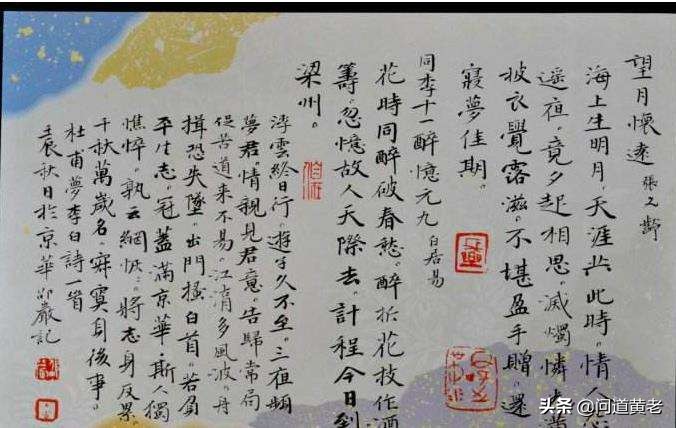 望月懷遠 張九齡
海上生明月。天涯共此時。情人怨
遥夜。竟夕起相思。滅燭憐光滿
披衣覺露滋。不堪盈手贈。還
寢夢佳期。
同李十一醉憶元九 白居易
花時同醉破春愁。醉折花枝作酒
籌。忽憶故人天際去。計程今日到
梁州。
浮雲終日行。遊子久不至。三夜頻
夢君。情親見君意。告歸常局
促苦道来不易。江湖多風波。舟
楫恐失墜。出門搔白首。若負
平生志。冠蓋滿京華。斯人獨
憔悴。孰云網恢。將志身反累。
千秋萬歲名。寂寞身後事。
杜甫夢李白詩一首
壬辰秋日於京華邵巖記
头条 @问道黄老